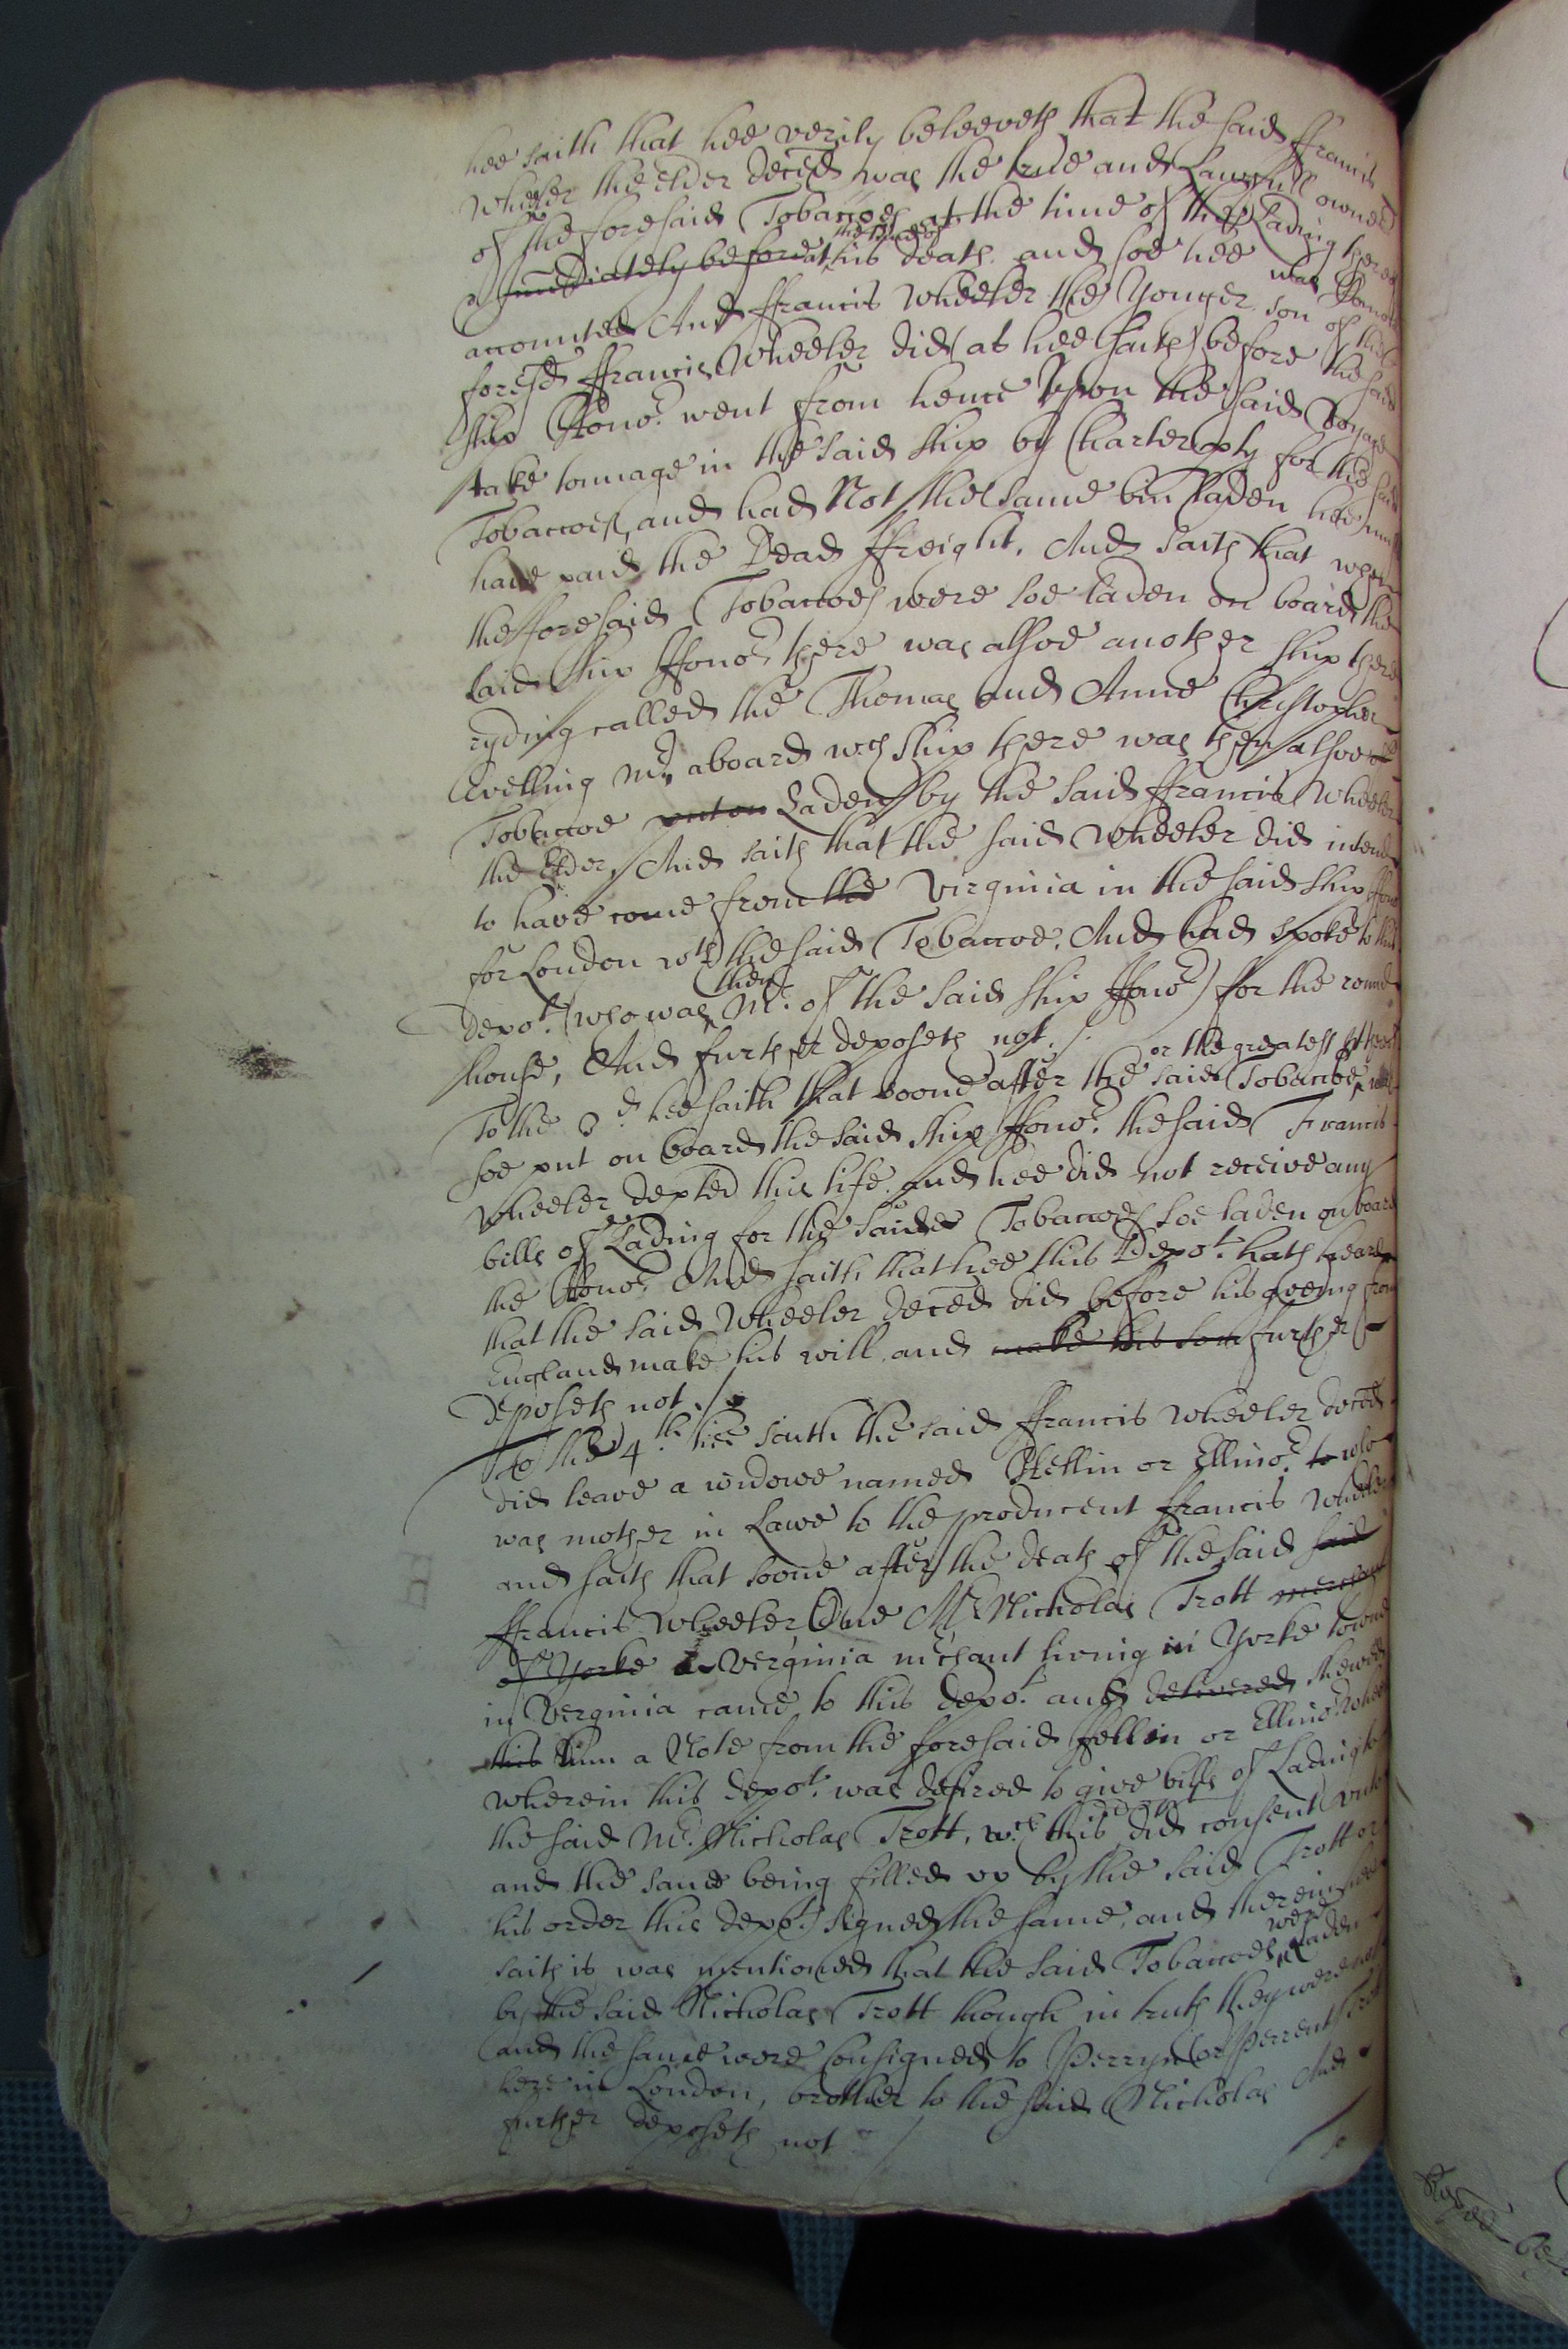 hee saith that hee verily beleeveth that the said ffrancis
Wheeler the elder deced was the true and Lawfull owner
of the foresaid Tobaccoes at the time of the Lading thereof
& immediately before at the tyme of his death. and soe hee was
accounted And ffrancis Wheeler the Yonger son of the
foresd ffrancis Wheeler did (as hee saith) before the said
ship Honor. went from hence Upon the said Voyage
take tonnage in the said ship by Charter pty for the said
Tobaccoes, and had Not the same bin Laden hee must
have paid the Dead ffreight. And saith that when
the foresaid Tobaccoes were soe laden on board the
said ship Honor. there was alsoe another ship there
ryding called the Thomas and Anne Christopher
Evelling Mr. aboard wch ship there was then alsoe
Tobaccoe put on Laden by the said ffrancis Wheeler
the Elder, And saith that the said Wheeler did intend
to have come from the Virginia in the said ship Honor
for London wth the said Tobaccoe. And had spoke to this
depot. (who was then Mr. of the said ship Honor) for the round
house, And further deposeth not ./.
To the 3d. hee saith that soone after the said Tobaccoe, or the greatest pt thereof were
soe put on board the said ship Honor. the said Francis
Wheeler depted this life. and hee did not receive any
bills of Lading for the saides Tobaccoes soe laden on board
the Honor. And saith that hee this Depot. hath heard
that the said Wheeler deced did before his goeing from
England make his will. and make his son further
deposeth not ./.
To the 4th. hee saith the said ffrancis Wheeler deced
did leave a widowe named Hellin or Ellinor. to who
was mother in Lawe to the producent ffrancis Wheeler
and saith that soone after the death of the said said
ffrancis Wheeler One Mr Nicholas Trott merchant
of Yorke Virginia mchant living in Yorke towne
in Verginia came to this depot. and delivered shewed
this him a Note from the foresaid Hellin or Ellinor. Wheeler
wherein this depot. was desired to give bills of Lading to
the said Mr. Nicholas Trott, wch this depot did consent unto
and the same being filled up by the said Trott or
his order this depot. signed the same, and therein hee
saith it was mentioned that the said Tobaccoes were Laden
by the said Nicholas Trott though in truth they were not
and the same were Consigned to Perryn or Perrent Trott
here in London, brother to the said Nicholas And
further deposeth not /
To